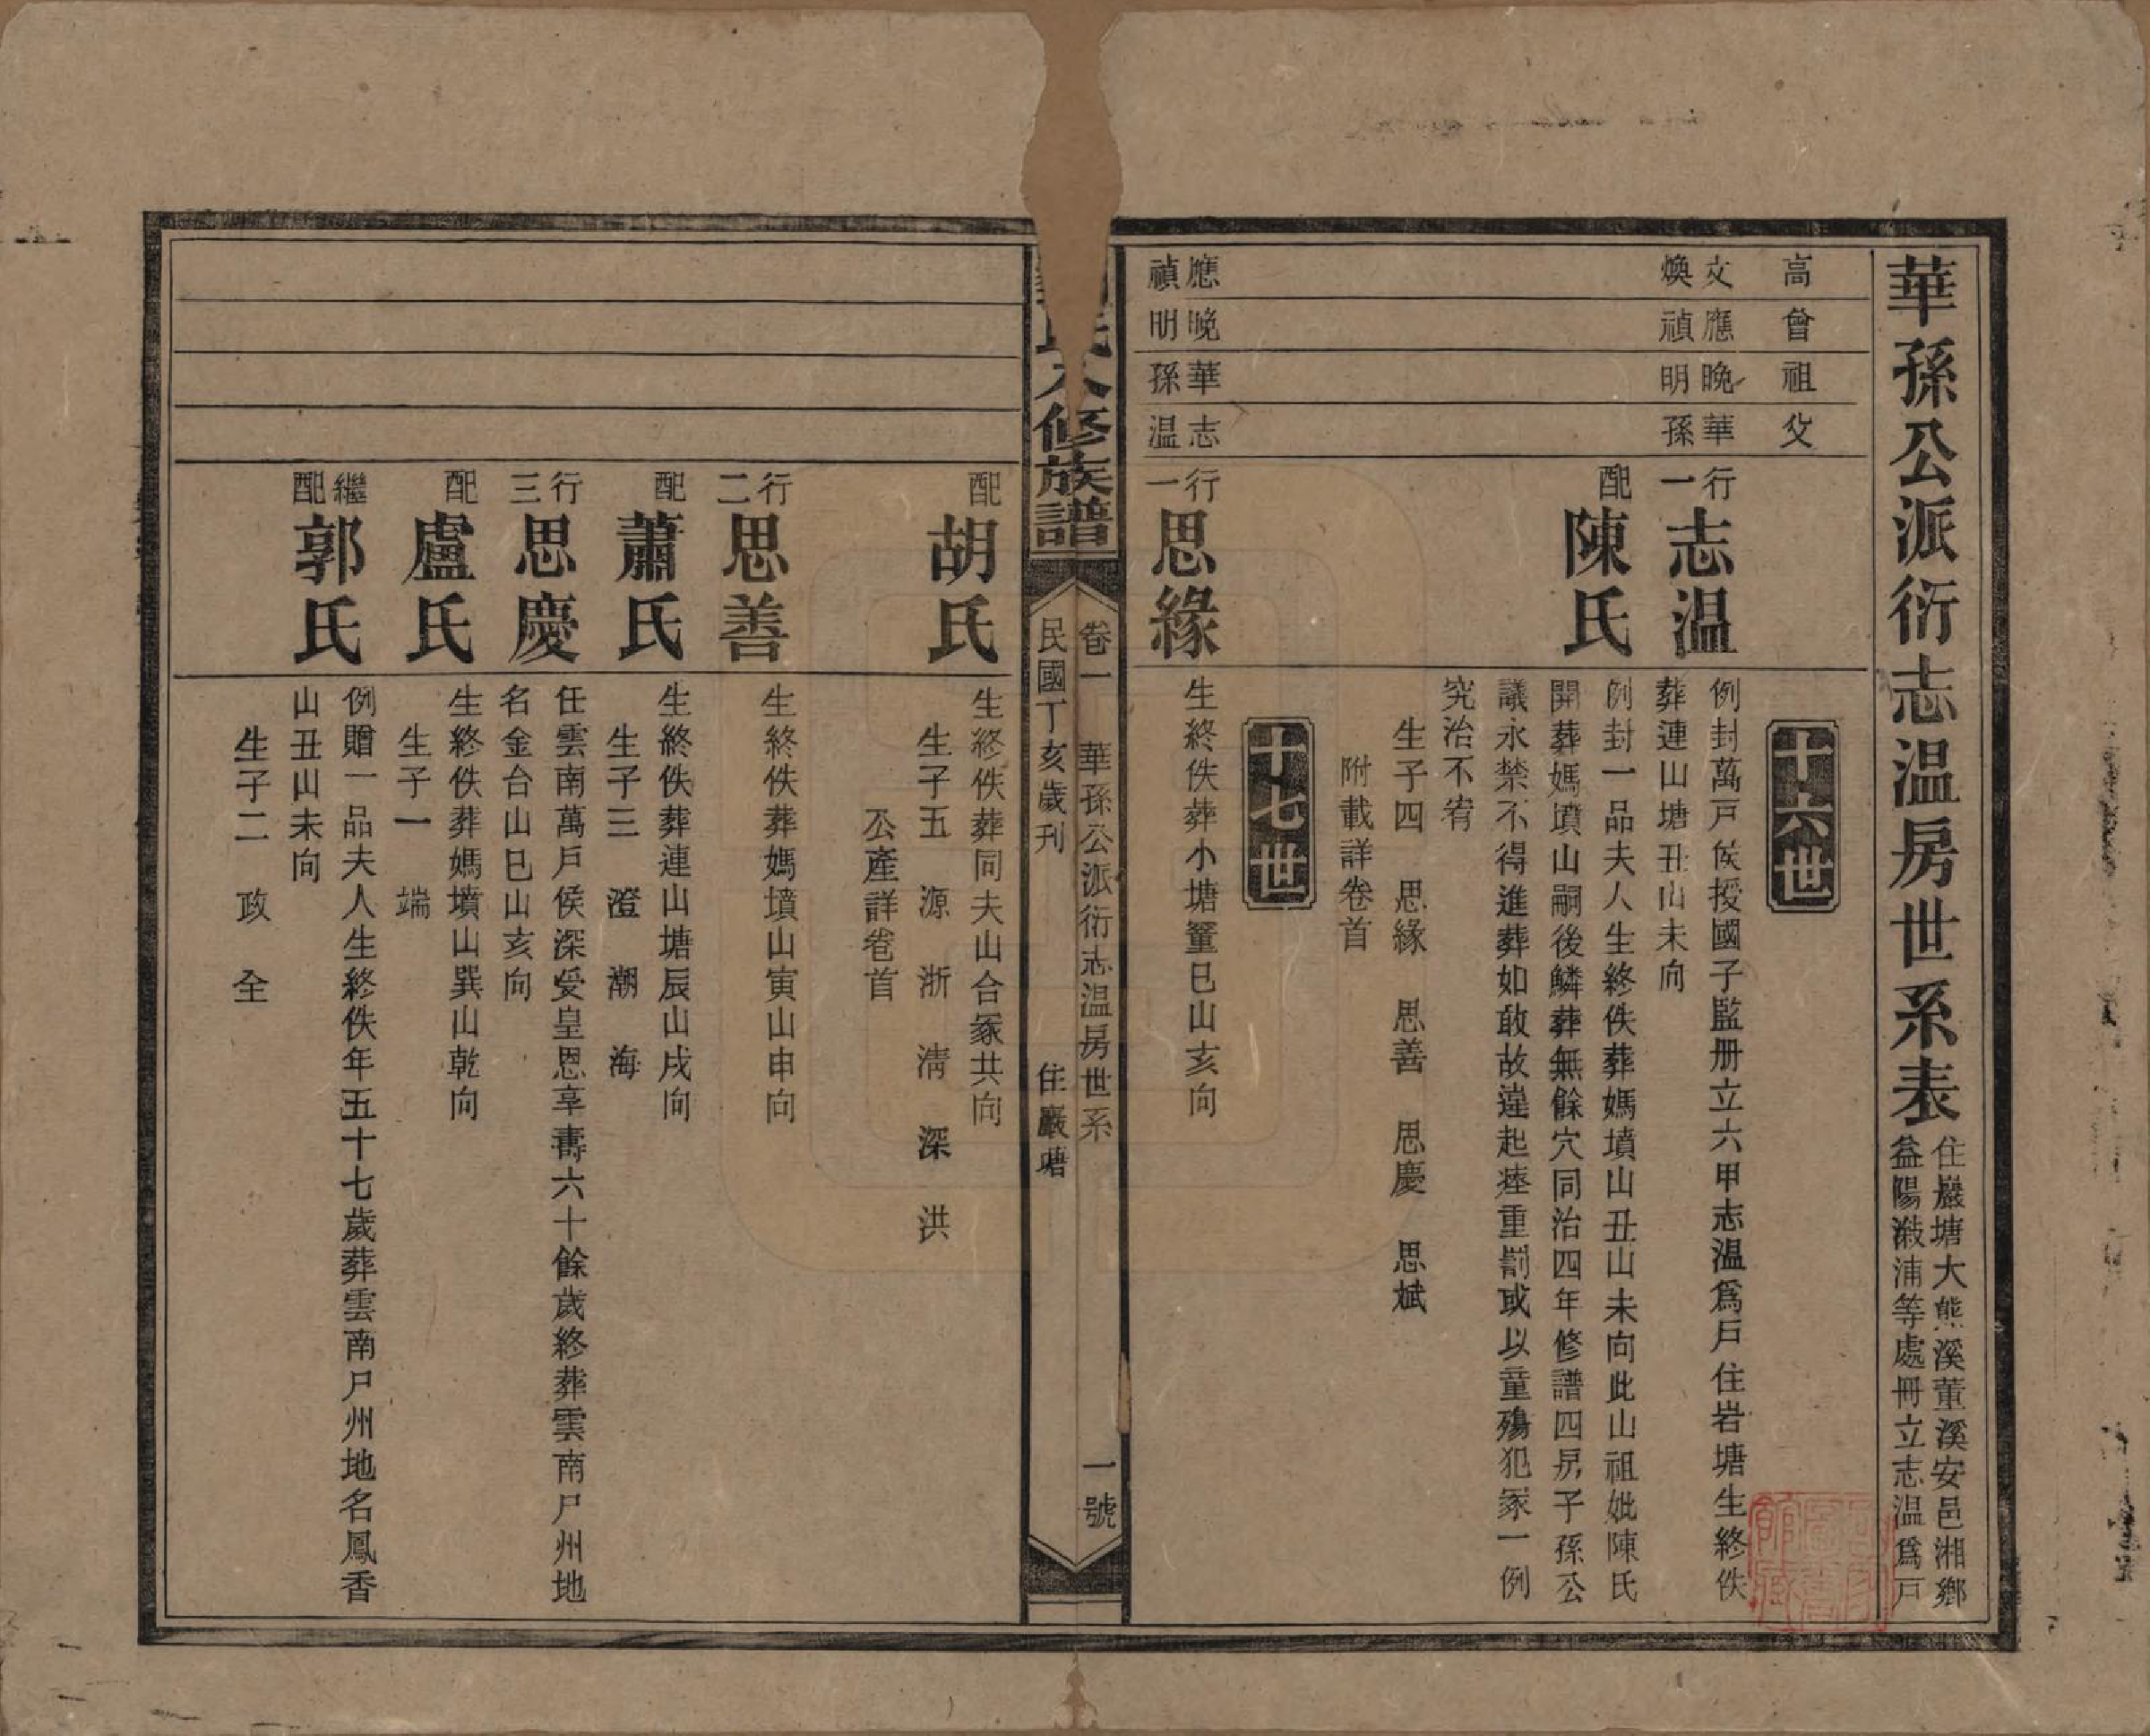 華孫公派衍志温房世系表
住巖塘大熊溪董溪安邑湘鄉
益陽漵浦等處冊立志温爲戸
高 曾 祖 父
十六世
文 應 晚 華
煥 禎 明 孫
行一 志温
例封萬戸侯授國子監册立六甲志温爲戸住岩塘生終佚
葬連山塘丑山未向
配 陳氏
例封一品夫人生終佚葬媽墳山丑山未向此山祖妣陳氏
開葬媽墳山嗣後鱗葬無餘穴同治四年修譜四房子孫公
議永禁不得進葬如敢故違起瘞重罰或以童殤犯冢一例
究治不宥
生子四 思緣 思善 思慶 思斌
附載詳卷首
十七世
應 晚 華 志
禎 明 孫 温
行一 思緣
生終佚葬小塘巳山亥向
氏 修族譜
卷一 華孫公派衍志温房世系 一號
民國丁亥歲刊 住巖塘
配 胡氏
生終佚葬同夫山合冢共向
生子五 源 浙 淸 深 洪
公產詳卷首
行二 思善
生終佚葬媽墳山寅山申向
配 蕭氏
生終佚葬連山塘辰山戌向
生子三 澄 潮 海
行三 思慶
任雲南萬戸侯深受皇恩享壽六十餘歲終葬雲南尸州地
名金台山巳山亥向
配 盧氏
生終佚葬媽墳山巽山乾向
生子一 端
繼配 郭氏
例贈一品夫人生終佚年五十七歲葬雲南尸州地名鳳香
山丑山未向
生子二 政 全